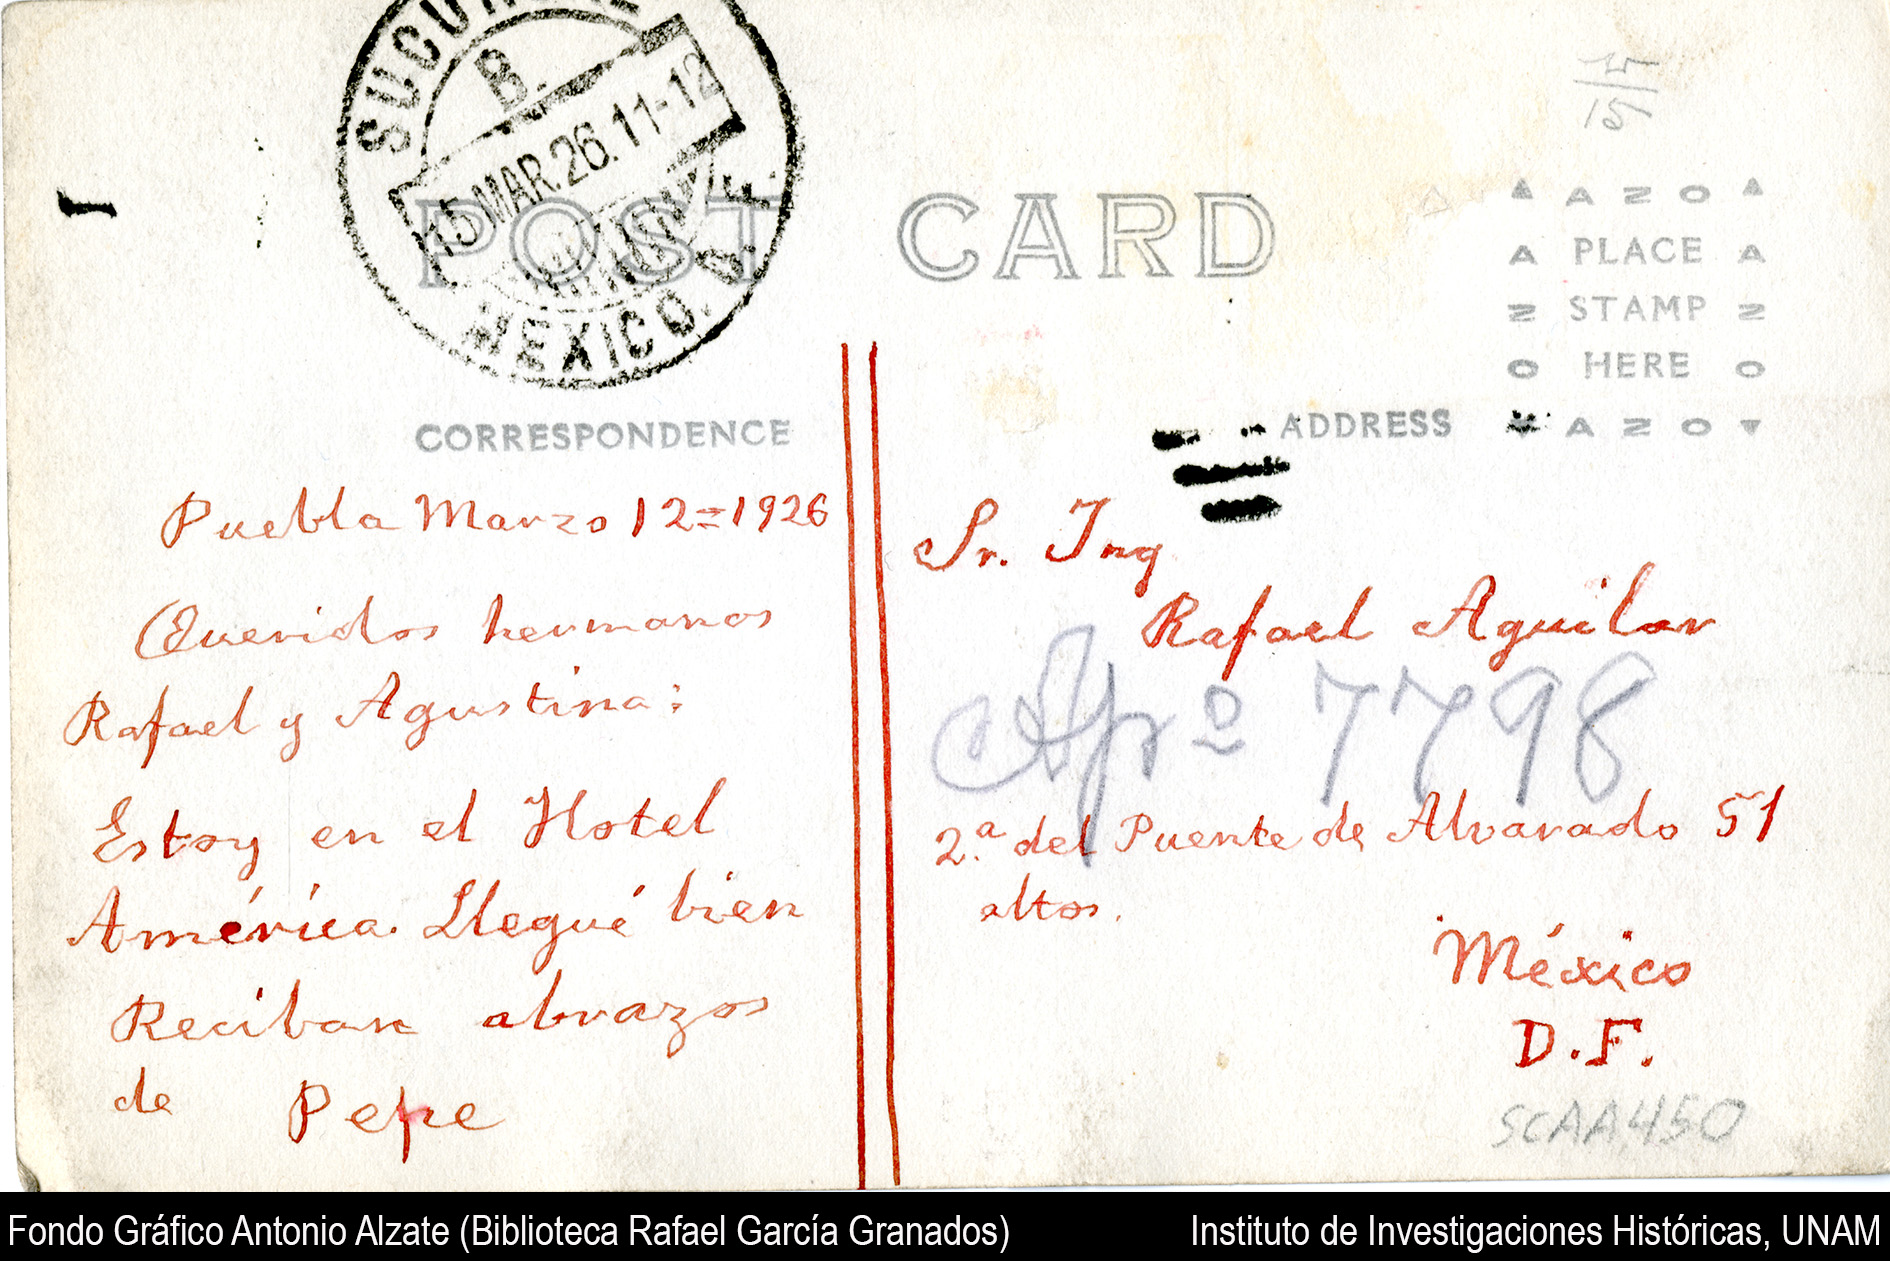 SUCURSAL
B.
15 MAR.26.11-12
MEXICO. D.F.
POST CARD
15
AZO
PLACE
STAMP
HERE
AZO
CORRESPONDENCE
ADDRESS
Puebla Marzo 12=1926
Queridos hermanos
Rafael y Agustina:
Estoy en el Hotel
América. Llegué bien
Reciban abrazos
de Pepe
Sr. Ing
Rafael Aguilar
Apº 7798
2.ª del Puente de Alvarado 51
altos.
México
D.F.
SCAA450
Fondo Gráfico Antonio Alzate (Biblioteca Rafael García Granados)
Instituto de Investigaciones Históricas, UNAM